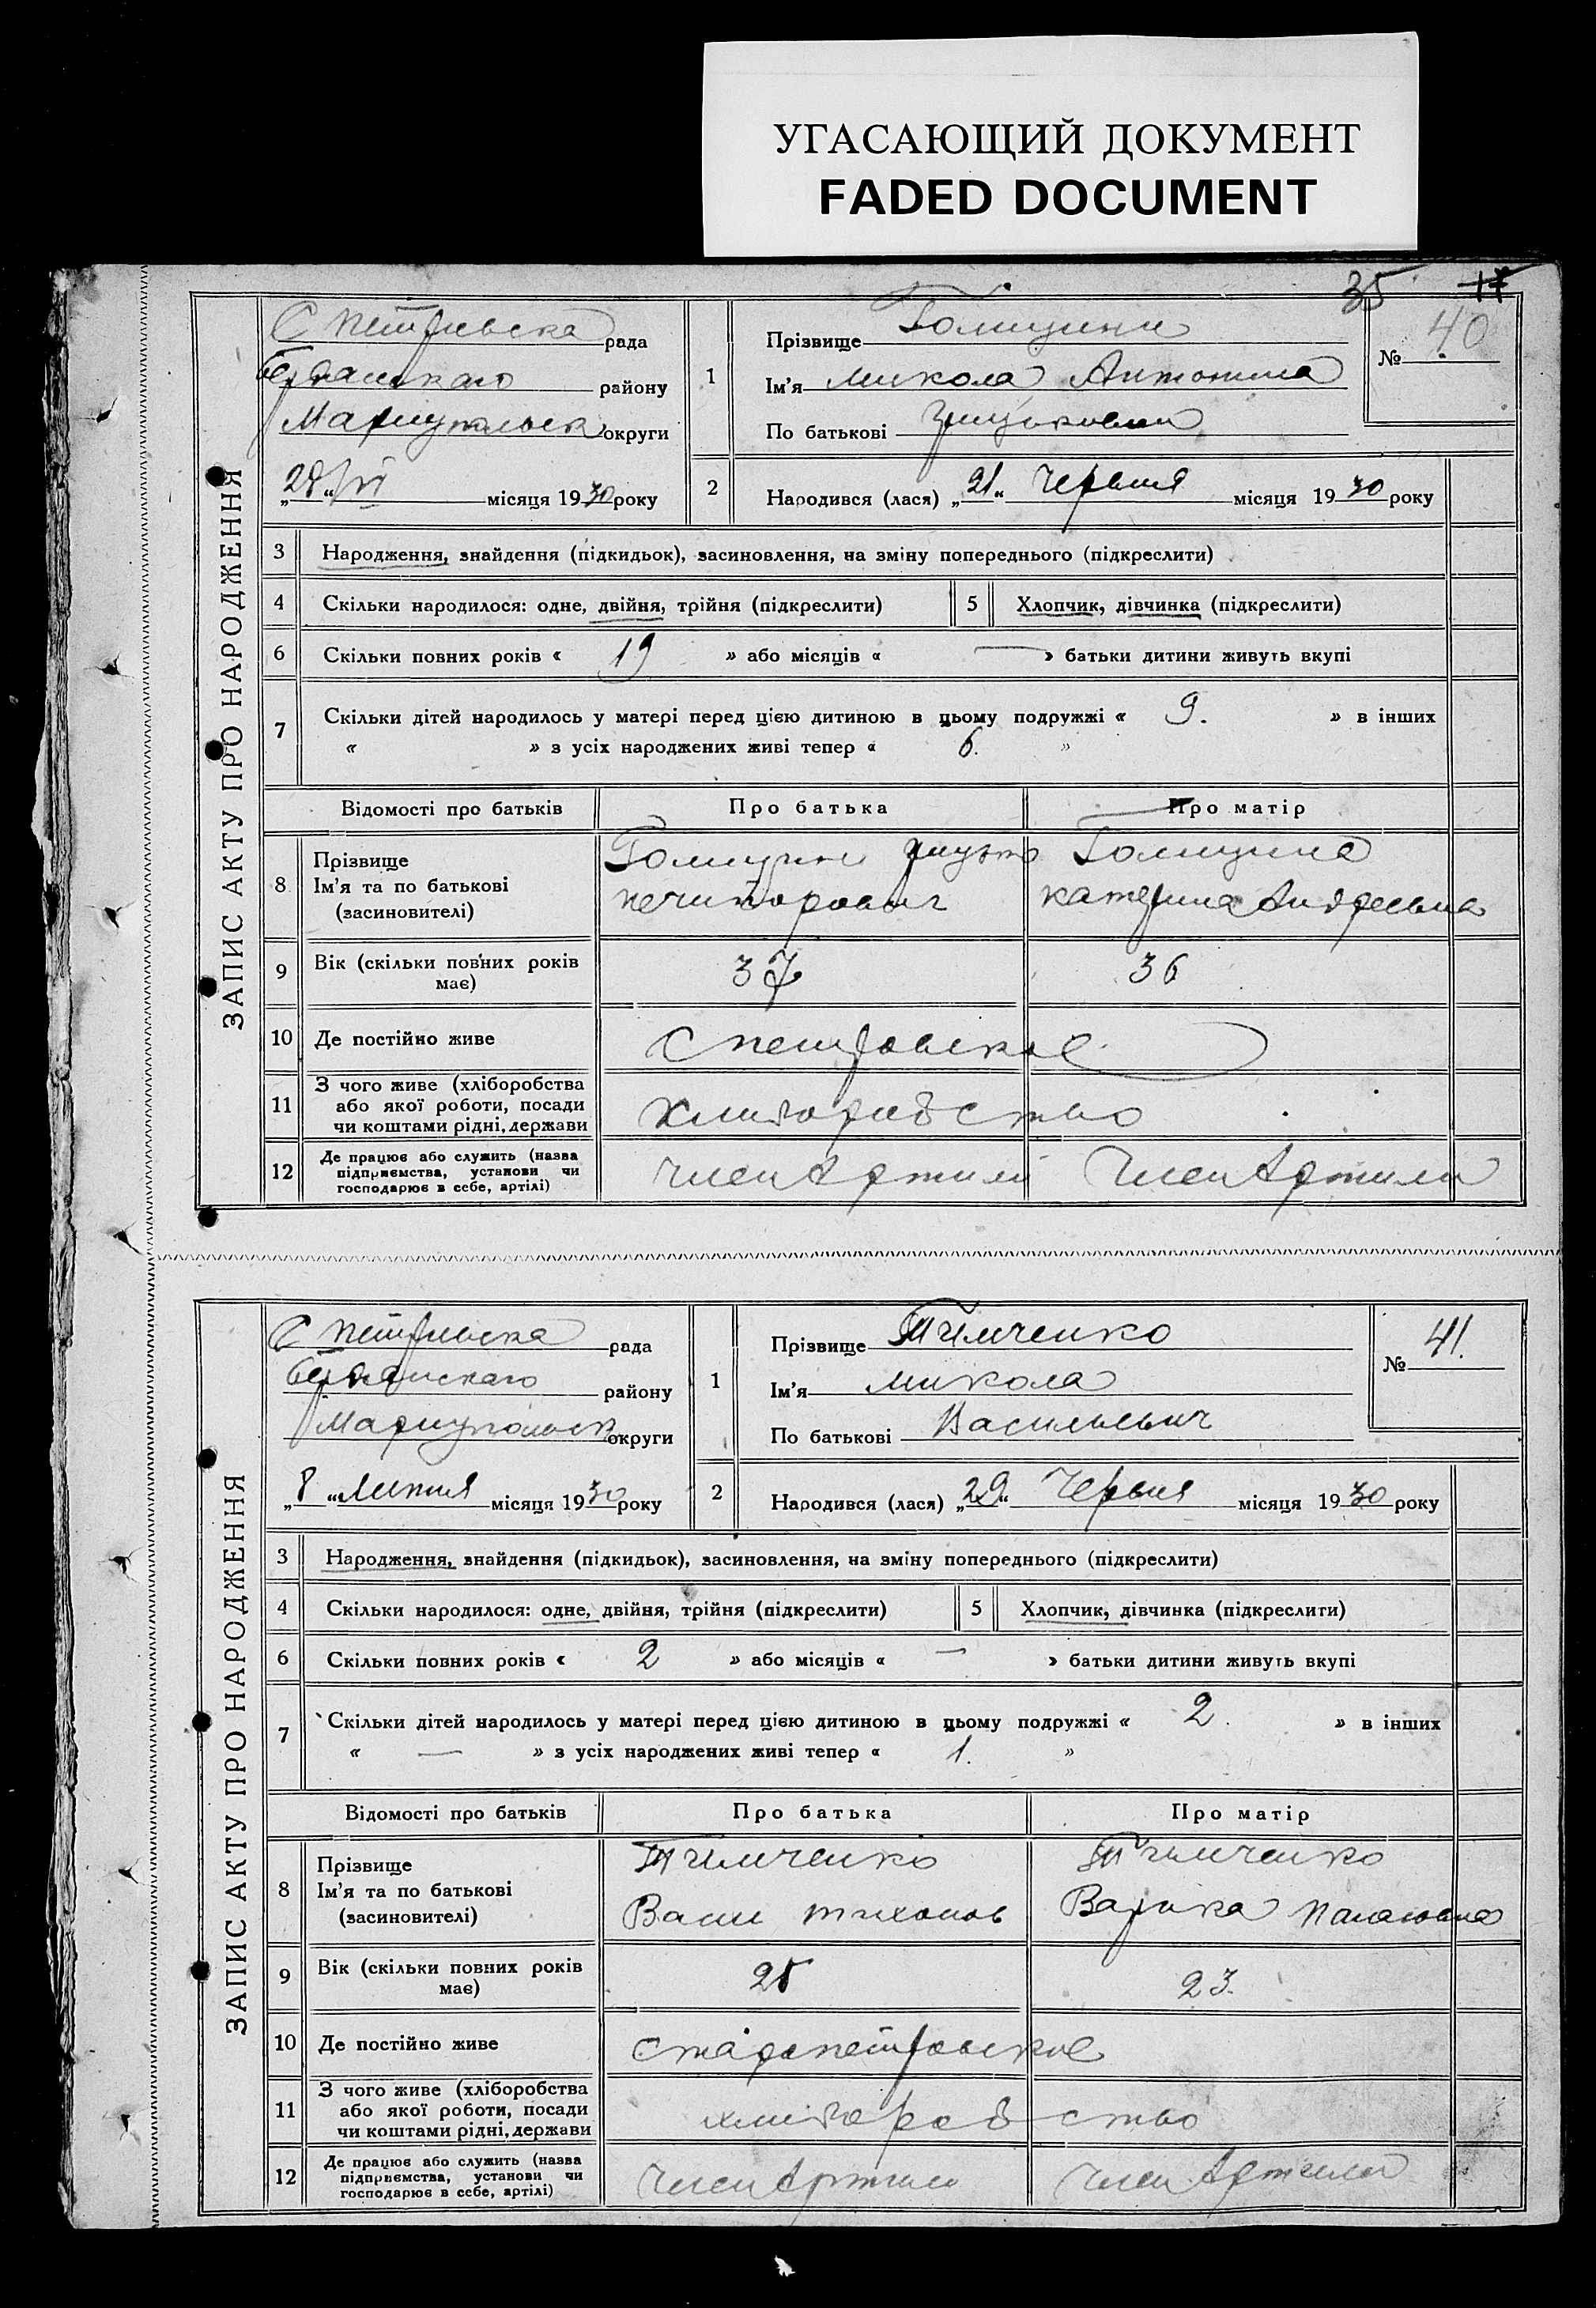 УГАСАЮЩИЙ ДОКУМЕНТ
FADED DOCUMENT
35 17
ЗАПИС АКТУ ПРО НАРОДЖЕННЯ
С Петрівська рада
Бердянскаго району
Маріупольск округи
„28“ VI місяця 1930 року
1 Прізвище Голицини
Ім'я Микола Антонина
По батькові
№ 40
2 Народився (лася) „21“ Червня місяця 1930 року
3 Народження, знайдення (підкидьок), засиновлення, на зміну попереднього (підкреслити)
4 Скільки народилося: одне, двійня, трійня (підкреслити) 5 Хлопчик, дівчинка (підкреслити)
6 Скільки повних років « 19 » або місяців « — » батьки дитини живуть вкупі
7 Скільки дітей народилось у матері перед цією дитиною в цьому подружжі « 9. » в інших
« » з усіх народжених живі тепер « 6. »
Відомості про батьків Про батька Про матір
8 Прізвище
Ім'я та по батькові
(засновителі)
Голицин Грицько
Нечипорович
Голицина
Катерина Андреевна
9 Вік (скільки повних років
має)
37 36
10 Де постійно живе С Петровское
11 З чого живе (хліборобства
або якої роботи, посади
чи коштами рідні, держави
Хлиборобство
12 Де працює або служить (назва
підприємства, установи чи
господарює в себе, артілі)
Член Артили Член Артили
ЗАПИС АКТУ ПРО НАРОДЖЕННЯ
С Петрівська рада
Бердянскаго району
Маріупольск округи
„8“ Липня місяця 1930 року
1 Прізвище Тимченко
Ім'я Микола
По батькові Васильевич
№ 41.
2 Народився (лася) „29“ Червня місяця 1930 року
3 Народження, знайдення (підкидьок), засиновлення, на зміну попереднього (підкреслити)
4 Скільки народилося: одне, двійня, трійня (підкреслити) 5 Хлопчик, дівчинка (підкреслити)
6 Скільки повних років « 2 » або місяців « — » батьки дитини живуть вкупі
7 Скільки дітей народилось у матері перед цією дитиною в цьому подружжі « 2. » в інших
« — » з усіх народжених живі тепер « 1. »
Відомості про батьків Про батька Про матір
8 Прізвище
Ім'я та по батькові
(засиновителі)
Тимченко
Васил Тихонов
Тимченко
Варька
9 Вік (скільки повних років
має)
25 23.
10 Де постійно живе Старопетровское
11 З чого живе (хліборобства
або якої роботи, посади
чи коштами рідні, держави
хлиборобство
12 Де працює або служить (назва
підприємства, установи чи
господарює в себе, артілі)
Член Артили Член Артили